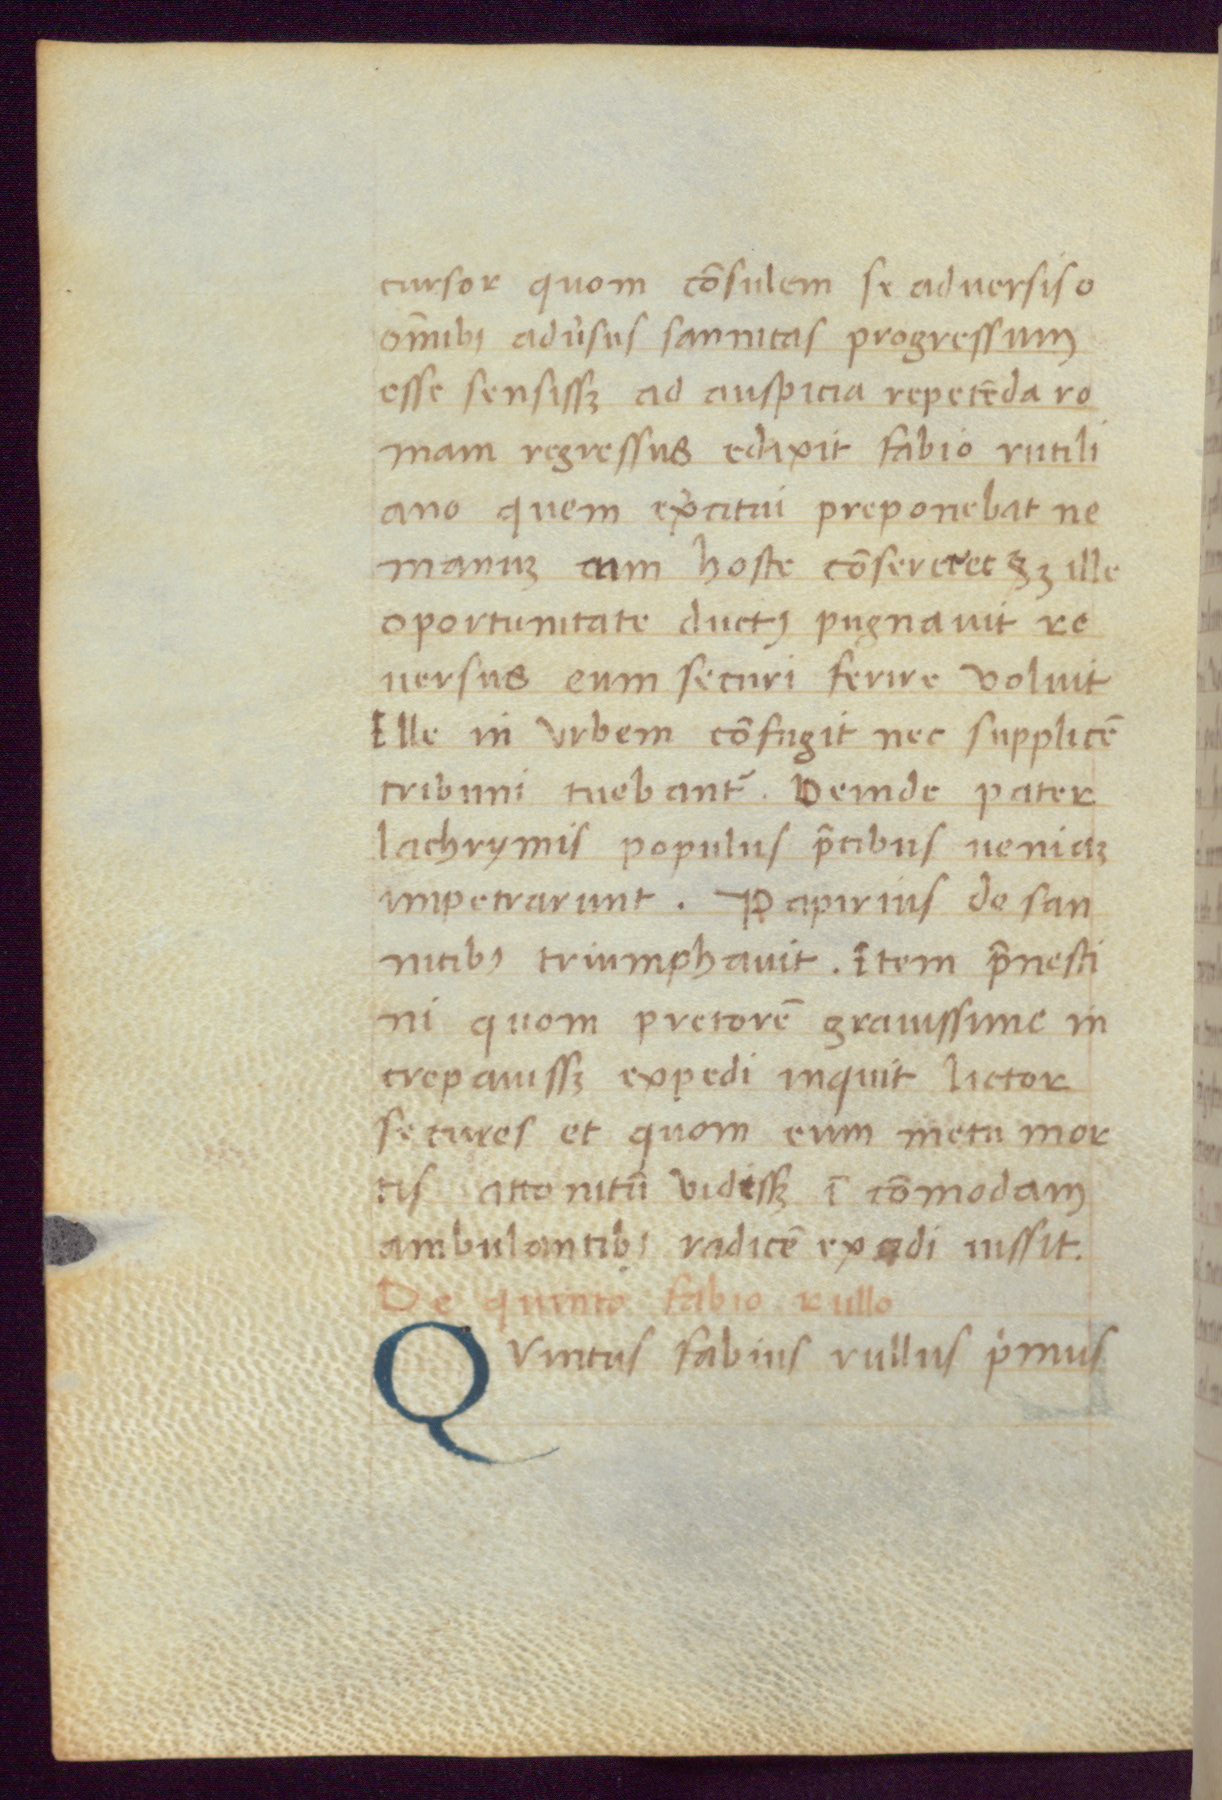 cursor quom cōsulem se aduersis o
om̄ibꝰ adu̓sus samnitas progressum
esse sensissꝫ ad auspicia repetēda ro
mam regressus edixit fabio rutili
ano quem exͥcitui preponebat ne
manuꝫ cum hoste cōsereret Sꝫ ille
oportunitate ductꝰ pugnauit re
uersus eum securi ferire voluit
Ille in vrbem cōfugit nec supplicē
tribuni tuebant̃. Deinde pater
lachrymis populus p̄cibus ueniaꝫ
impetrarunt. Papirius de sam
nitibꝰ triumphauit. Item p̄nesti
ni quom pretorē grauissime in
crepauissꝫ expedi inquit lictor
secures et quom eum metu mor
tis attonitū vidissꝫ ī cōmodam
ambulantibꝰ radicē excidi iussit.
De quinto fabio rullo
QVintus fabius rullus pͥmus